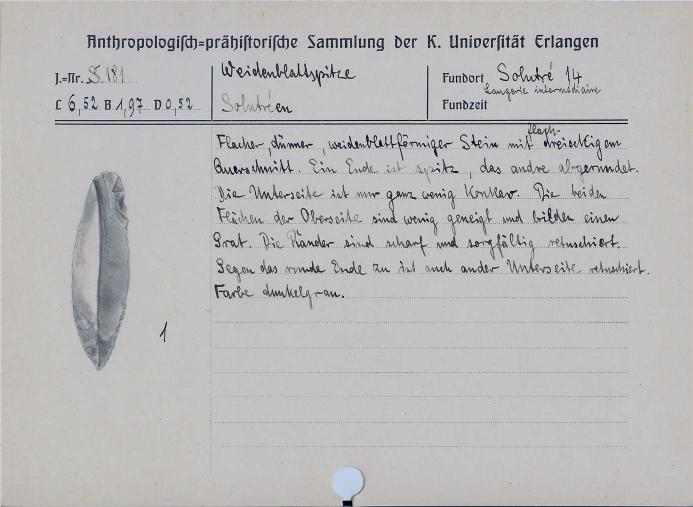 Anthropologisch=prähistorische Sammlung der K. Universität Erlangen
J.=Nr. S. 181
L 6,52 B 1,97 D 0,52
Weidenblattspitze
Solutréen
Fundort Solutré 14
Laugerie intermédiaire
Fundzeit
flach-
Flacher, dünner, weidenblattförmiger Stein mit dreieckigem
Querschnitt. Ein Ende ist spitz, das andre abgerundet.
Die Unterseite ist nur ganz wenig konkav. Die beiden
Flächen der Oberseite sind wenig geneigt und bilden einen
Grat. Die Ränder sind scharf und sorgfältig retuschiert.
Gegen das runde Ende zu ist auch ander Unterseite retuschiert.
Farbe dunkelgrau.
1